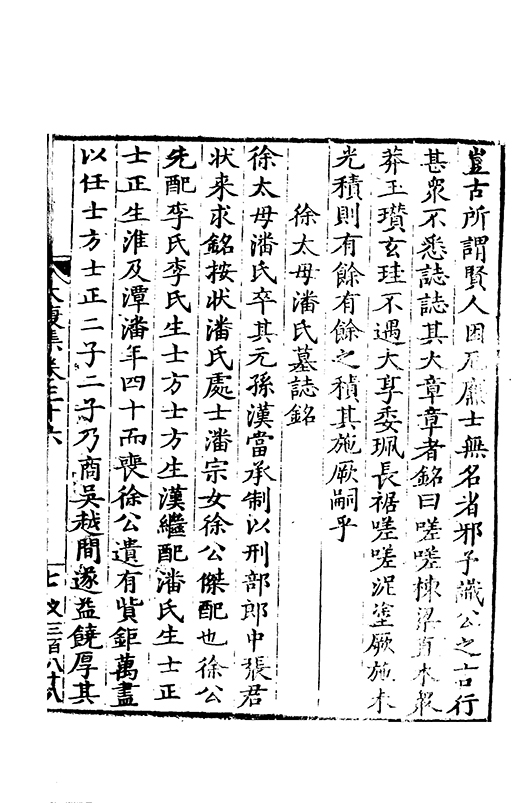 豈古所謂賢人困厄廉士無名者邪予識公之言行
甚衆不悉誌誌其大章章者銘曰嗟嗟棟梁直木叢
莽玉瓚玄珪不遇大享委珮長裾嗟嗟泥塗厥施未
光積則有餘有餘之積其施厥嗣乎
徐太母潘氏墓誌銘
徐太母潘氏卒其元孫漢當承制以刑部郎中張君
狀来求銘按狀潘氏處士潘宗女徐公傑配也徐公
先配李氏李氏生士方士方生漢繼配潘氏生士正
士正生淮及潭潘年四十而喪徐公遺有貲鉅萬盡
以任士方士正二子二子乃商吳越間遂益饒厚其
集卷三十六
七
三百八十八